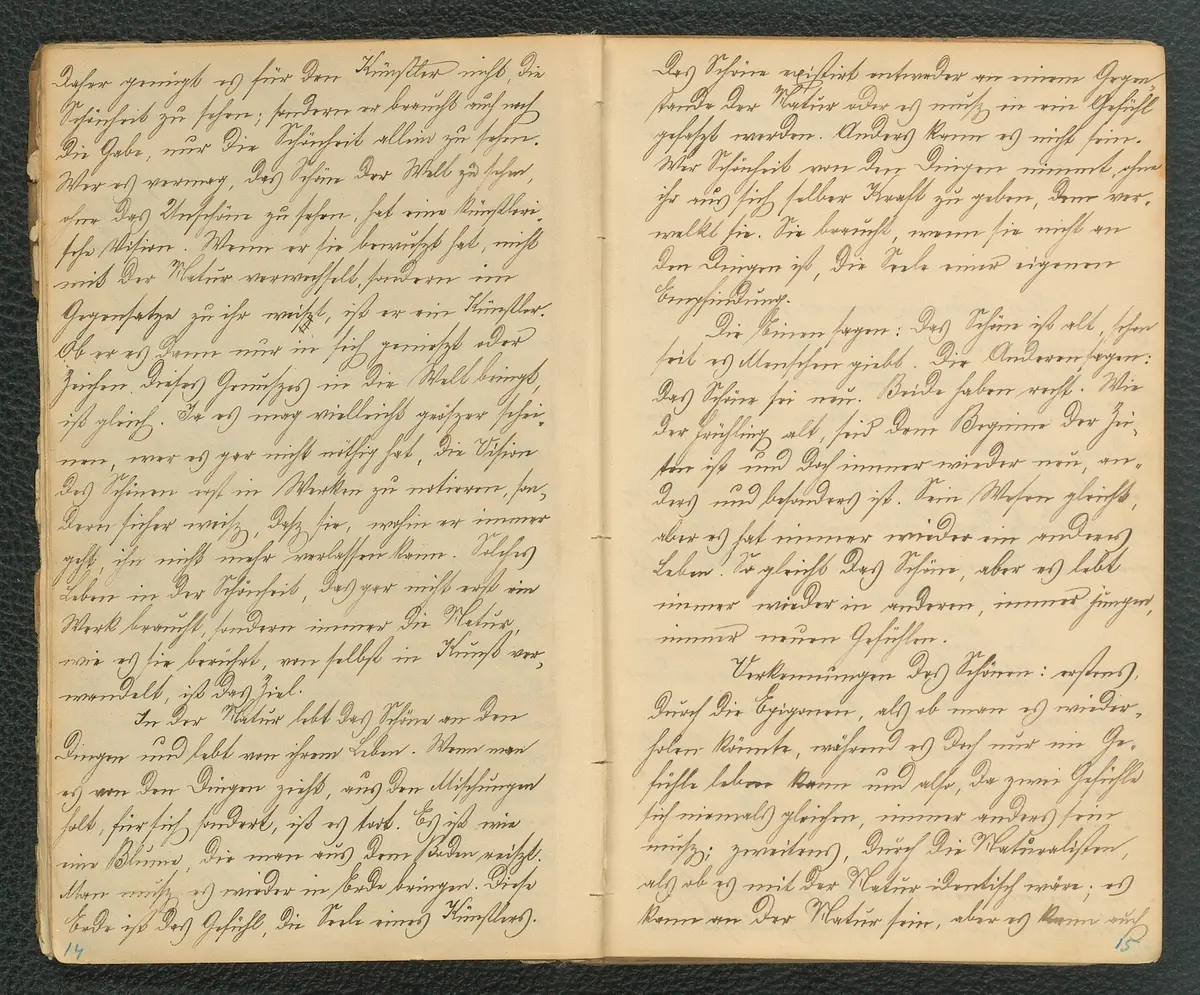 Daher genügt es für den Künstler nicht, die
Schönheit zu sehen; sondern er braucht auch noch
die Gabe, nur die Schönheit allein zu sehen.
Wer es vermag, das Schöne der Welt zu sehen,
ohne das Unschöne zu sehen, hat eine künstleri-
sche Vision. Wenn er sie bewuszt hat, nicht
mit der Natur verwechselt, sondern im
Gegensatze zu ihr weisz, ist er ein Künstler.
Ob er es dann nur in sich genieszt oder
Zeichen dieses Genuszes in die Welt bringt,
ist gleich. Ja es mag vielleicht gröszer schei-
nen, wer es gar nicht nöthig hat, die Vision
des Schönen erst in Werken zu notieren, son-
dern sicher weisz, dasz sie, wohin er immer
geht, ihn nicht mehr verlassen kann. Solches
Leben in der Schönheit, das gar nicht erst ein
Werk braucht, sondern immer die Natur,
wie es sie berührt, von selbst in Kunst ver-
wandelt, ist das Ziel.
In der Natur lebt das Schöne an den
Dingen und lebt von ihrem Leben. Wenn man
es von den Dingen zieht, aus den Mischungen
holt, für sich sondert, ist es tot. Es ist wie
eine Blume, die man aus dem Boden reiszt.
Man musz es wieder in Erde bringen. Diese
Erde ist das Gefühl, die Seele eines Künstlers.
14
Das Schöne existirt entweder an einem Gegen-
stande der Natur oder es musz in ein Gefühl
gefaszt werden. Anders kann es nicht sein.
Wer Schönheit von den Dingen nimmt, ohne
ihr aus sich selber Kraft zu geben, dem ver-
welkt sie. Sie braucht, wenn sie nicht an
den Dingen ist, die Seele einer eigenen
Empfindung.
Die Einen sagen: das Schöne ist alt, schon
seit es Menschen giebt. Die Anderen sagen:
das Schöne sei neu. Beide haben recht. Wie
der Frühling alt, seid dem Beginne der Zei-
ten ist und doch immer wieder neu, an-
ders und besonders ist. Sein Wesen gleicht,
aber es hat immer wieder ein anderes
Leben. So gleicht das Schöne, aber es lebt
immer wieder in anderen, immer jungen,
immer neuen Gefühlen.
Verkennungen des Schönen: erstens,
durch die Epigonen, als ob man es wieder-
holen könnte, während es doch nur im Ge-
fühle leben kann und also, da zwei Gefühle
sich niemals gleichen, immer anders sein
musz; zweitens, durch die Naturalisten,
als ob es mit der Natur identisch wäre; es
kann an der Natur sein, aber es kann auch
15